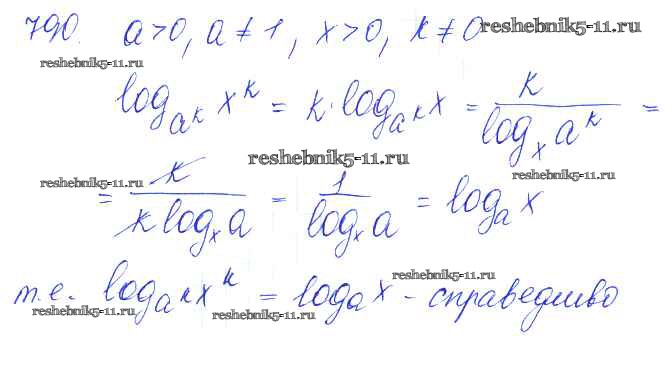 790. a>0, a≠1, x>0, k≠0
reshebnik5-11.ru
reshebnik5-11.ru
log_{a^k} x^k = k·log_{a^k} x = k/(log_x a^k) =
reshebnik5-11.ru
reshebnik5-11.ru
reshebnik5-11.ru
= k/(k log_x a) = 1/(log_x a) = log_a x
reshebnik5-11.ru
т.е. log_{a^k} x^k = log_a x - справедливо
reshebnik5-11.ru
reshebnik5-11.ru